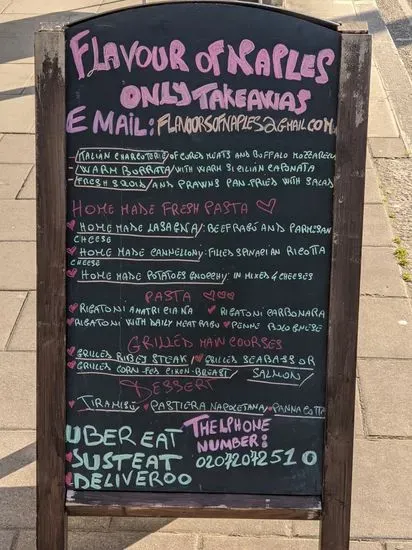 FLAVOUR OF NAPLES
ONLY TAKEAWAS
E MAIL: FLAVOORSOFNAPLES@GMAIL.COM
- ITALIAN CHARCUTERIE OF CURED MEATS AND BUFFALO MOZZARELLA
- WARM BURRATA/WITH WARM SICILIAN CAPONATA
- FRESH SQUID/AND PRAWNS PAN FRIED WITH SALAD
HOME MADE FRESH PASTA ♡
♥ HOME MADE LASAGNA/: BEEF RAGÚ AND PARMISAN
CHEESE
♥ HOME MADE CANNELLONI/: FILLED SPINACI AN RICOTTA
CHEESE
♥ HOME MADE POTATOES GNOCCHI/: IN MIXED 4 CHEESES
PASTA ♡♡♡
♥ RIGATONI AMATRICIANA ♥ RIGATONI CARBONARA
♥ RIGATONI WITH DAILY MEAT RAGU ♥ PENNE BOLOGNESE
GRILLED MAIN COURSES
♥ GRILLED RIBEY STEAK / ♥ GRILLED SEABASS OR
♥ GRILLED CORN-FED CIKEN-BREAST/ SALMON/
DESSERT
♥ TIRAMISÚ ♥ PASTIERA NAPOLETANA/♥ PANNA COTTA
UBER EAT
♥ SUSTEAT
♥ DELIVEROO
THELPHONE
NUMBER:
02072072510